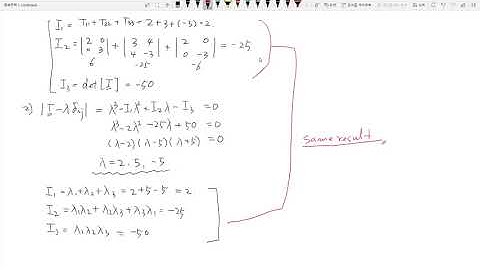 I₁ = T₁₁ + T₂₂ + T₃₃ = 2 + 3 + (-3) = 2
I₂ = |2 0; 0 3| + |3 4; 4 -3| + |2 0; 0 -3| = -25
6 -25 -6
I₃ = det[T] = -50
2) |T - λδij| = λ³ - I₁λ² + I₂λ - I₃ = 0
λ³ - 2λ² - 25λ + 50 = 0
(λ-2)(λ-5)(λ+5) = 0
λ = 2, 5, -5
same result
I₁ = λ₁ + λ₂ + λ₃ = 2 + 5 - 5 = 2
I₂ = λ₁λ₂ + λ₂λ₃ + λ₃λ₁ = -25
I₃ = λ₁λ₂λ₃ = -50